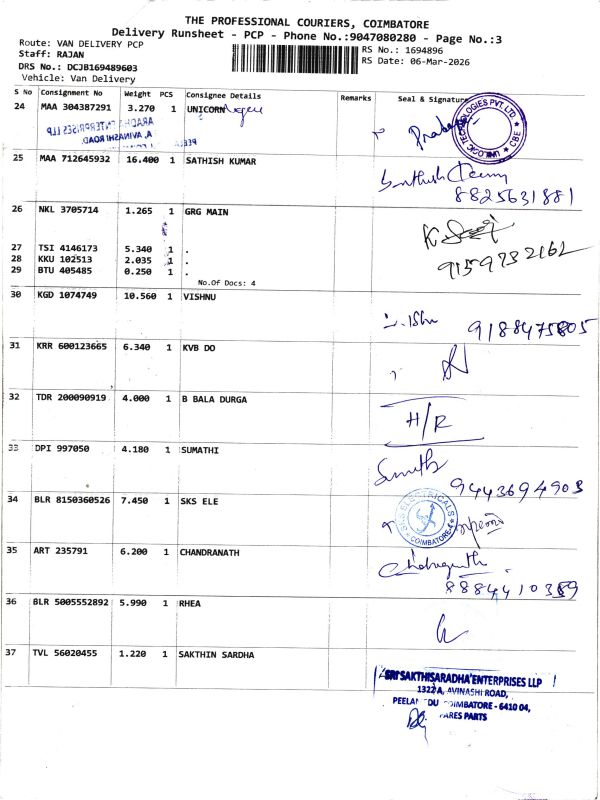 THE PROFESSIONAL COURIERS, COIMBATORE
Delivery Runsheet - PCP - Phone No.:9047080280 - Page No.:3
Route: VAN DELIVERY PCP
Staff: RAJAN
DRS No.: DCJB169489603
Vehicle: Van Delivery
RS No.: 1694896
RS Date: 06-Mar-2026
S No Consignment No Weight PCS Consignee Details Remarks Seal & Signature
24 MAA 304387291 3.270 1 UNICORN
UNILOGIC TECHNOLOGIES PVT LTD. CBE
ENTERPRISES LLP
A, AVINASHI ROAD,
25 MAA 712645932 16.400 1 SATHISH KUMAR
8825631881
26 NKL 3705714 1.265 1 GRG MAIN
9159732162
27 TSI 4146173 5.340 1 .
28 KKU 102513 2.035 1 .
29 BTU 405485 0.250 1 .
No.Of Docs: 4
30 KGD 1074749 10.560 1 VISHNU
9188475805
31 KRR 600123665 6.340 1 KVB DO
32 TDR 200090919 4.000 1 B BALA DURGA
H/R
33 DPI 997050 4.180 1 SUMATHI
9443694903
34 BLR 8150360526 7.450 1 SKS ELE
SKS ELECTRICALS COIMBATORE-4
35 ART 235791 6.200 1 CHANDRANATH
8884410389
36 BLR 5005552892 5.990 1 RHEA
37 TVL 56020455 1.220 1 SAKTHIN SARDHA
SRI SAKTHISARADHA ENTERPRISES LLP
1322 A, AVINASHI ROAD,
COIMBATORE - 6410 04,
PARTS